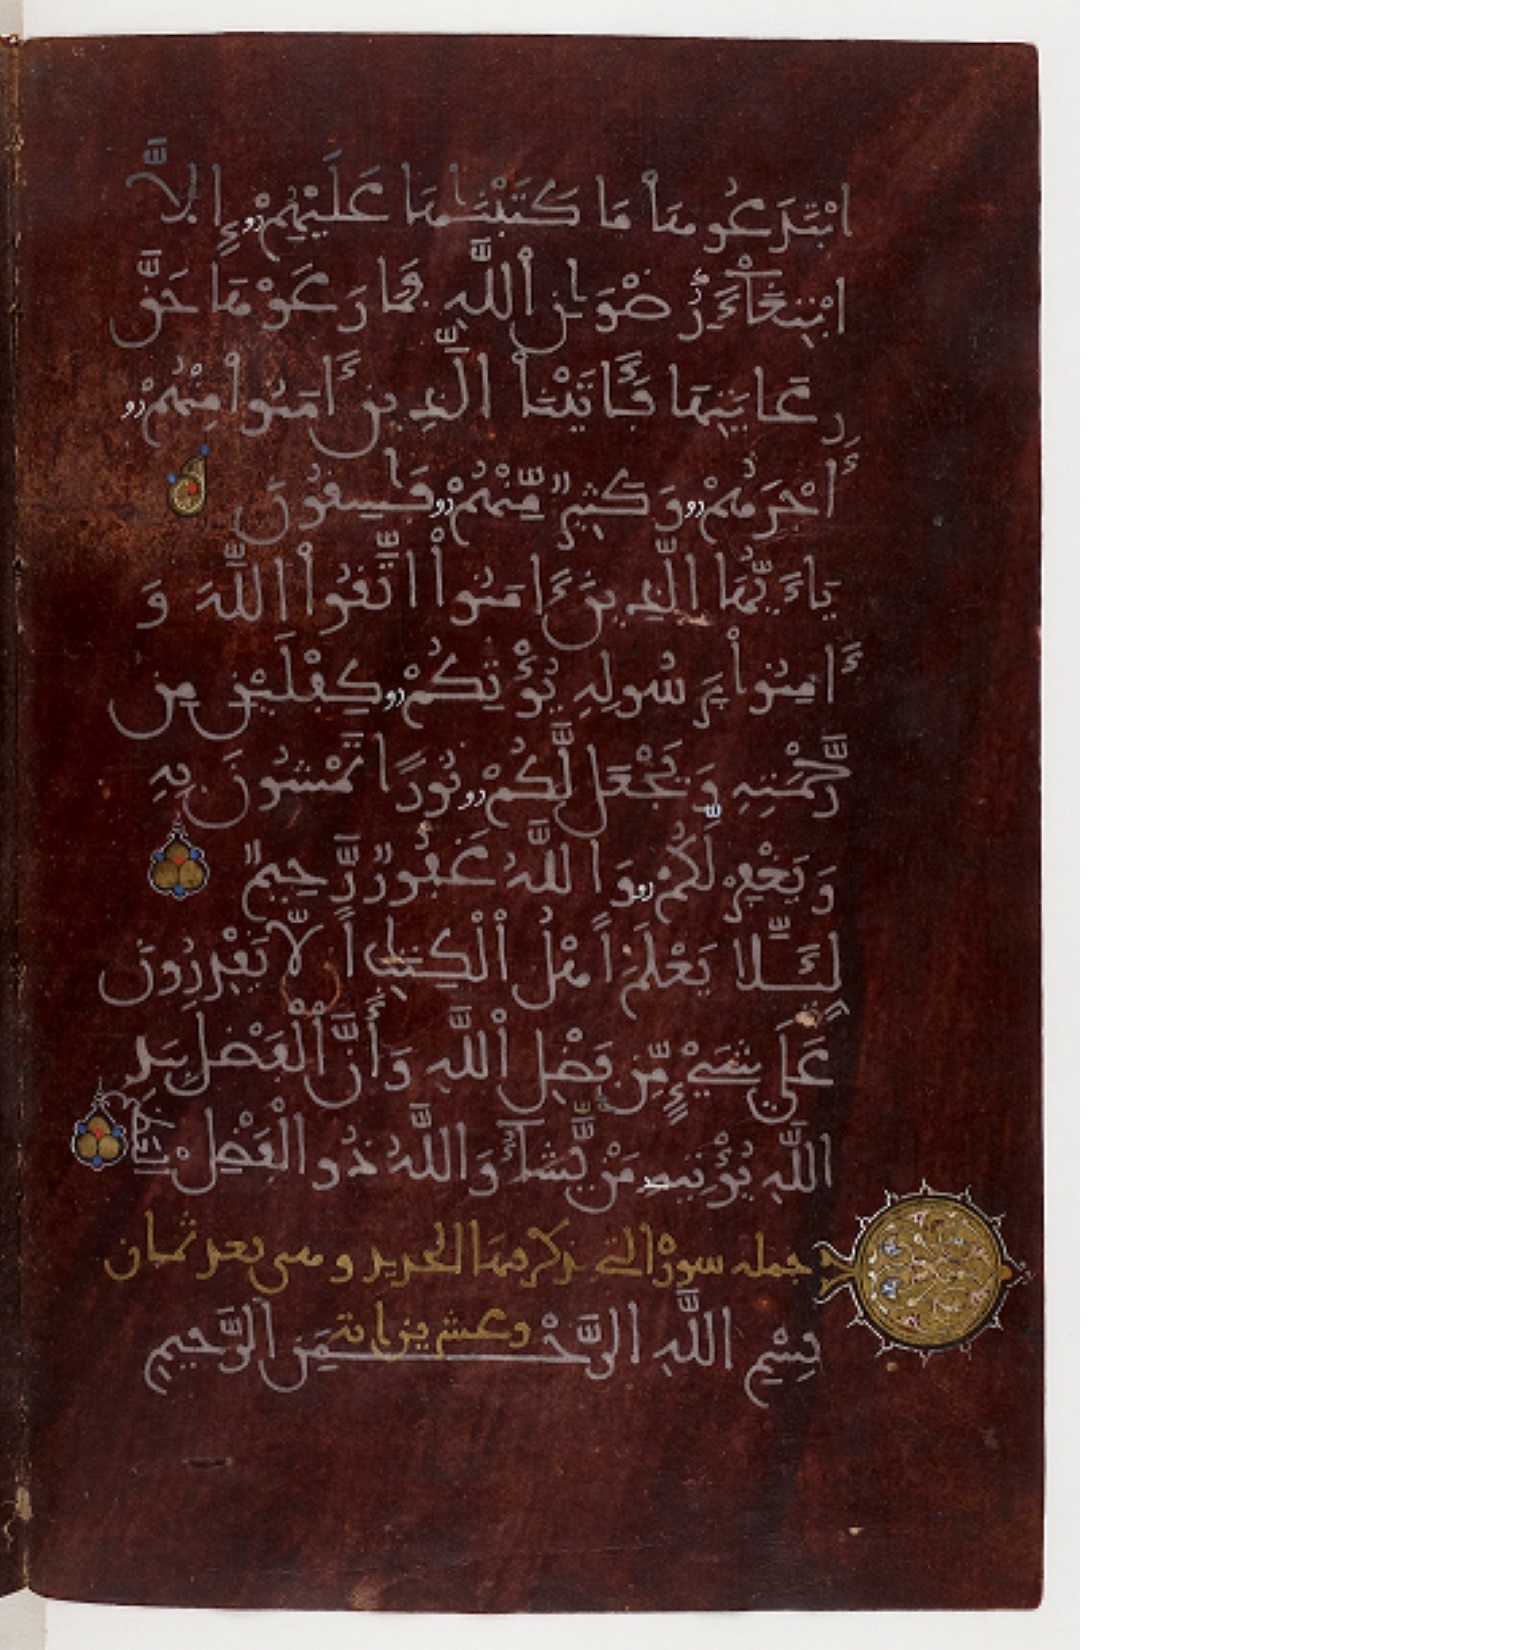 ابْتَدَعُوهَا مَا كَتَبْنَٰهَا عَلَيْهِمْ إِلَّا
ابْتِغَآءَ رِضْوَٰنِ اللَّهِ فَمَا رَعَوْهَا حَقَّ
رِعَايَتِهَا فَـَٔاتَيْنَا الَّذِينَ ءَامَنُوا مِنْهُمْ
أَجْرَهُمْ وَكَثِيرٌ مِّنْهُمْ فَٰسِقُونَ
يَٰأَيُّهَا الَّذِينَ ءَامَنُوا اتَّقُوا اللَّهَ وَ
ءَامِنُوا بِرَسُولِهِ يُؤْتِكُمْ كِفْلَيْنِ مِن
رَّحْمَتِهِ وَيَجْعَل لَّكُمْ نُورًا تَمْشُونَ بِهِ
وَيَغْفِرْ لَكُمْ وَاللَّهُ غَفُورٌ رَّحِيمٌ
لِئَلَّا يَعْلَمَ أَهْلُ الْكِتَٰبِ أَلَّا يَقْدِرُونَ
عَلَىٰ شَيْءٍ مِّن فَضْلِ اللَّهِ وَأَنَّ الْفَضْلَ بِيَدِ
اللَّهِ يُؤْتِيهِ مَنْ يَّشَآءُ وَاللَّهُ ذُو الْفَضْلِ الْعَظِيمِ
جملة سورة التي يذكر فيها الحديد وهي بعد ثمان
وعشرين اية
بِسْمِ اللَّهِ الرَّحْمَٰنِ الرَّحِيمِ